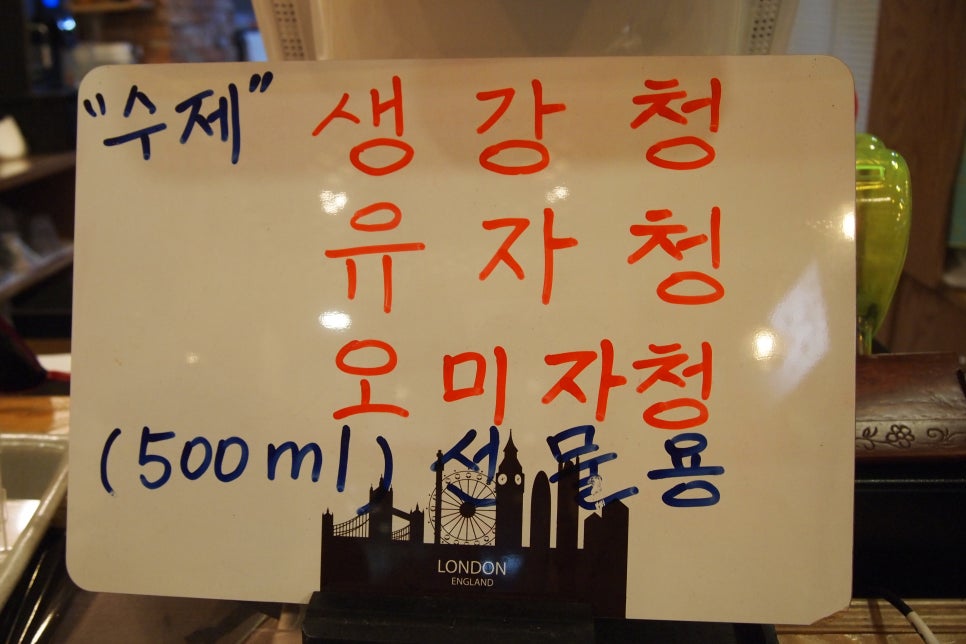 "수제" 생강청
유자청
오미자청
(500ml) 선물용
LONDON
ENGLAND